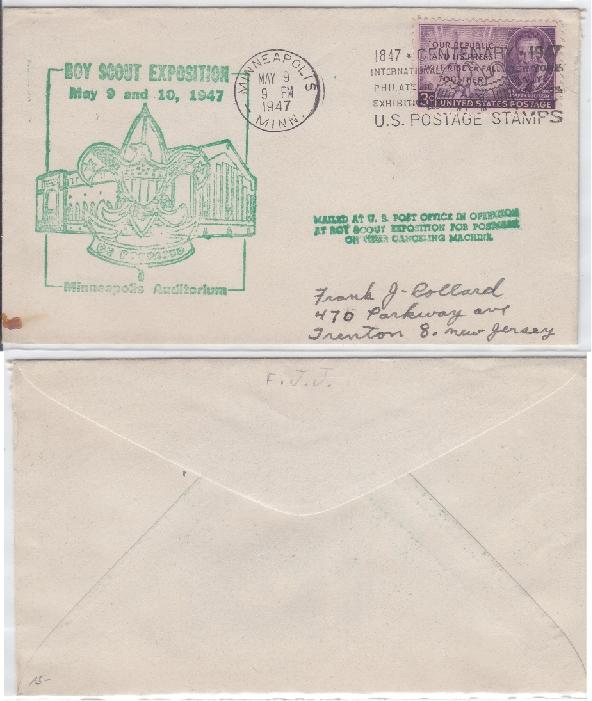 BOY SCOUT EXPOSITION
May 9 and 10, 1947
BE PREPARED
Minneapolis Auditorium
MINNEAPOLIS
MAY 9
9 PM
1947
MINN.
1847 • CENTENARY • 1947
INTERNATIONAL
PHILATELIC
EXHIBITION
U.S. POSTAGE STAMPS
OUR REPUBLIC
AND ITS PRESS
WILL RISE OR FALL
TOGETHER
3¢ UNITED STATES POSTAGE
MAILED AT U. S. POST OFFICE IN OPERATION
AT BOY SCOUT EXPOSITION FOR POSTMARK
ON CANCELING MACHINE
Frank J. Collard
470 Parkway ave
Trenton 8. new Jersey
F.J.J.
15-